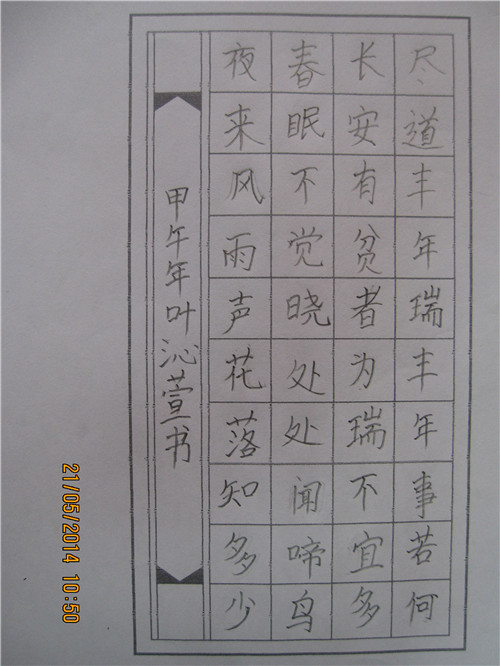 尽道丰年瑞丰年事若何
长安有贫者为瑞不宜多
春眠不觉晓处处闻啼鸟
夜来风雨声花落知多少
甲午年叶沁萱书
21/05/2014 10:50